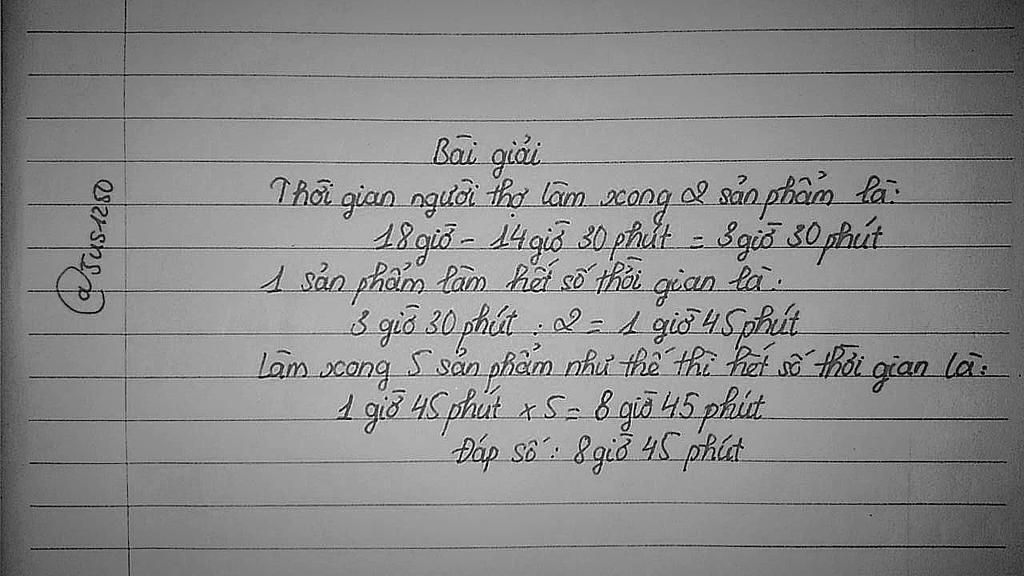 Bài giải
Thời gian người thợ làm xong 2 sản phẩm là:
18 giờ - 14 giờ 30 phút = 3 giờ 30 phút
1 sản phẩm làm hết số thời gian là:
3 giờ 30 phút : 2 = 1 giờ 45 phút
Làm xong 5 sản phẩm như thế thì hết số thời gian là:
1 giờ 45 phút x 5 = 8 giờ 45 phút
Đáp số: 8 giờ 45 phút